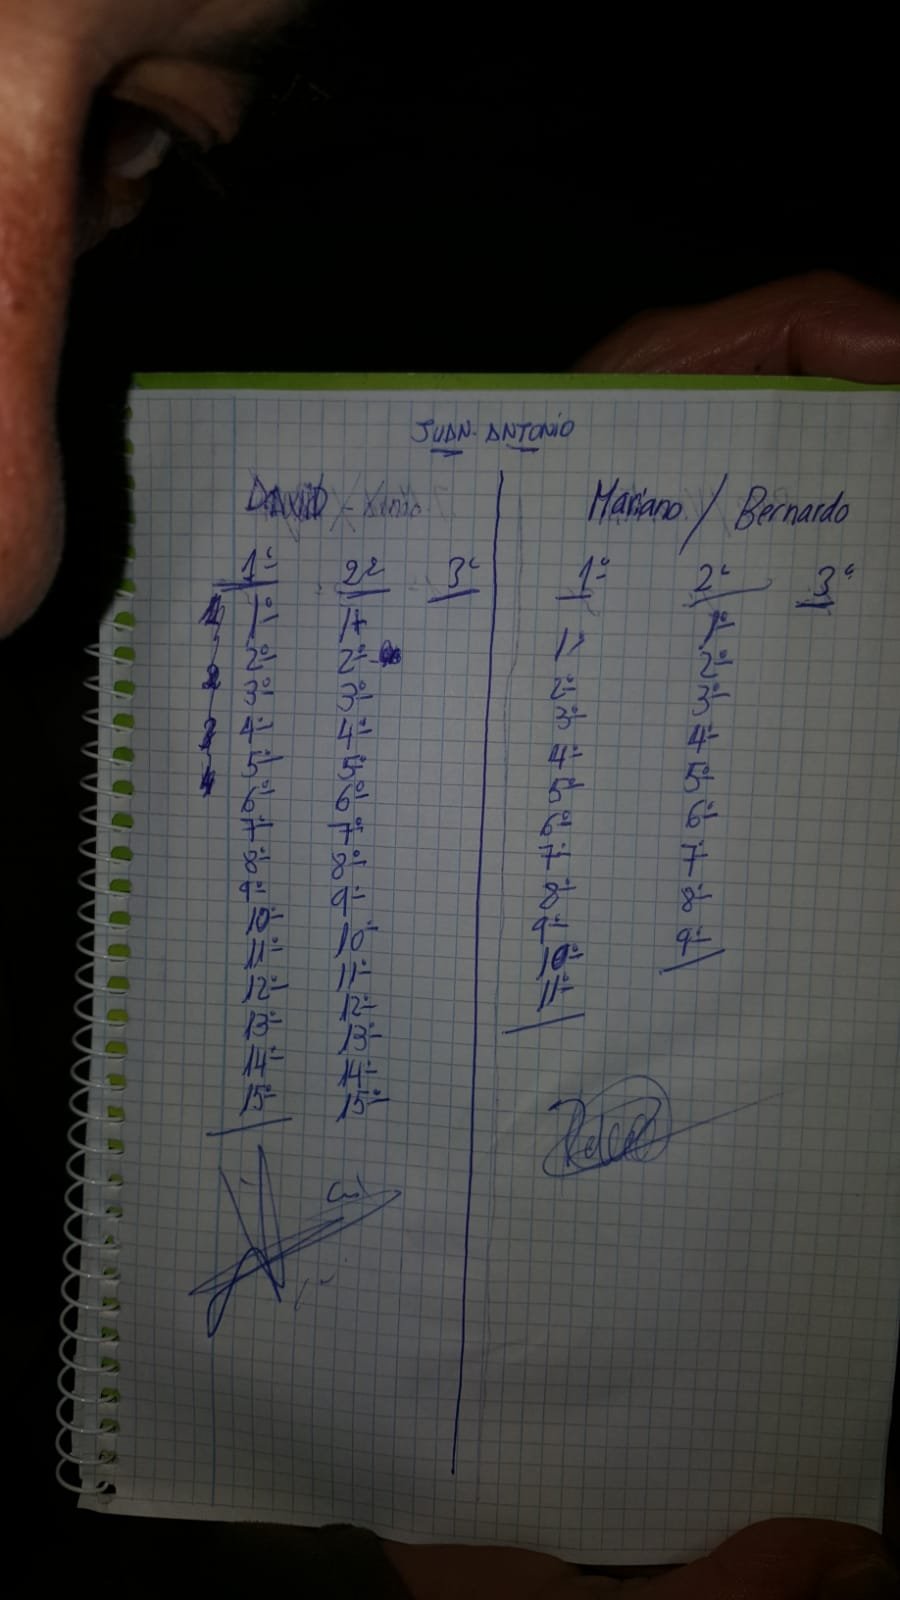 JUAN-ANTONIO
DAVID - Mariano / Bernardo
1º 2º 3º 1º 2º 3º
1 1º 1º 1º 1º
2º 2º 1º 2º
2 3º 3º 2º 3º
3 4º 4º 3º 4º
4 5º 5º 4º 5º
6º 6º 5º 6º
7º 7º 6º 7º
8º 8º 7º 8º
9º 9º 8º 9º
10º 10º 9º
11º 11º 10º
12º 12º 11º
13º 13º
14º 14º
15º 15º